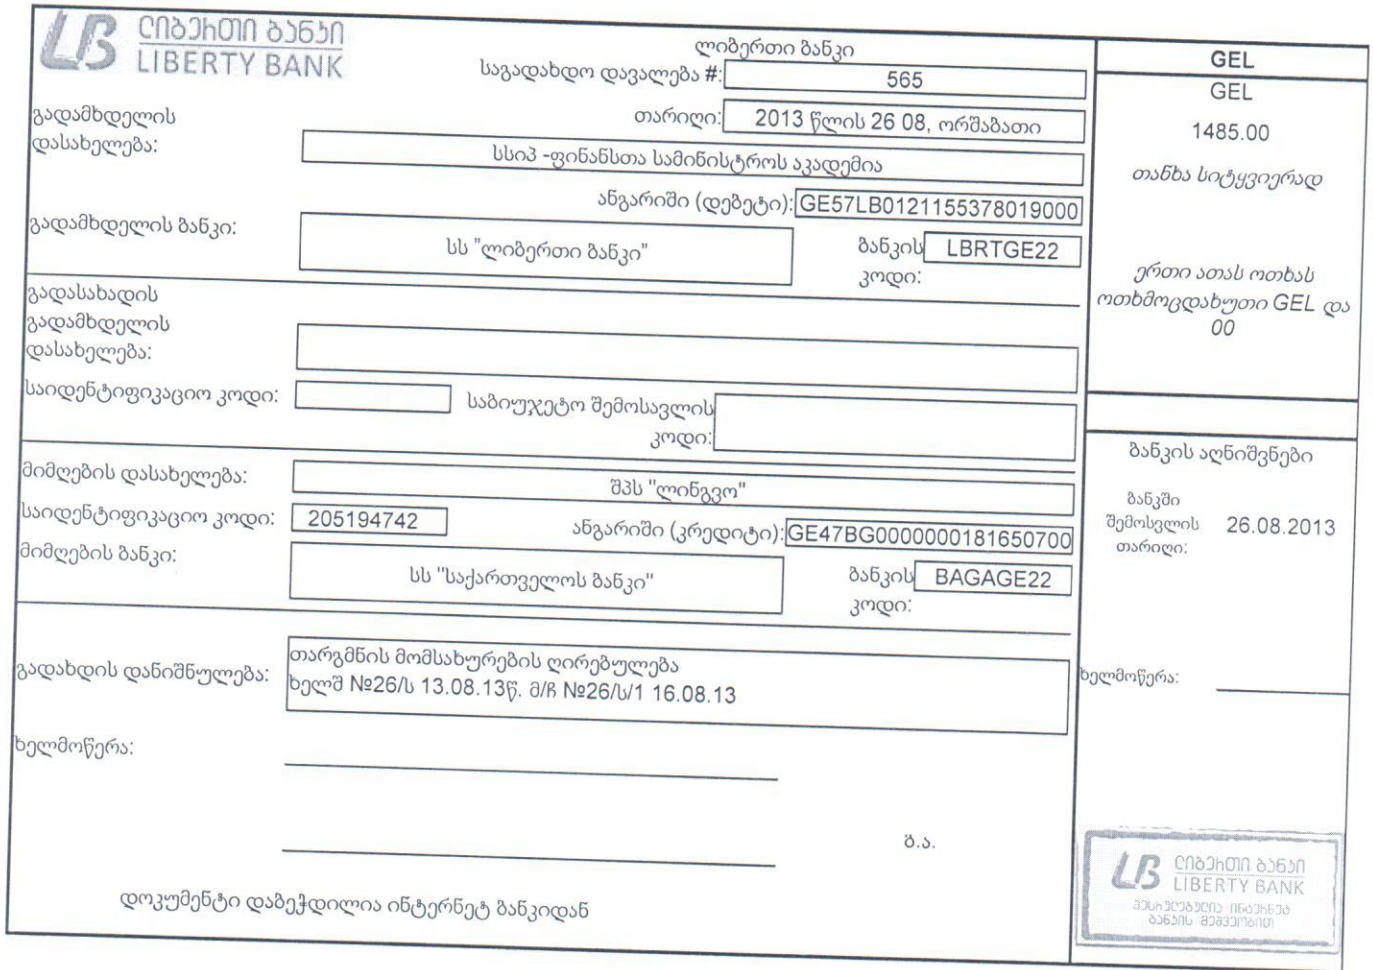 ლიბერთი ბანკი
LIBERTY BANK
ლიბერთი ბანკი
საგადახდო დავალება #: 565
თარიღი: 2013 წლის 26 08, ორშაბათი
გადამხდელის
დასახელება: სსიპ -ფინანსთა სამინისტროს აკადემია
ანგარიში (დებეტი): GE57LB0121155378019000
გადამხდელის ბანკი: სს "ლიბერთი ბანკი" ბანკის LBRTGE22
კოდი:
გადასახადის
გადამხდელის
დასახელება:
საიდენტიფიკაციო კოდი: საბიუჯეტო შემოსავლის
კოდი:
მიმღების დასახელება: შპს "ლინგვო"
საიდენტიფიკაციო კოდი: 205194742 ანგარიში (კრედიტი): GE47BG0000000181650700
მიმღების ბანკი: სს "საქართველოს ბანკი" ბანკის BAGAGE22
კოდი:
გადახდის დანიშნულება: თარგმნის მომსახურების ღირებულება
ხელშ №26/ს 13.08.13წ. მ/ჩ №26/ს/1 16.08.13
ხელმოწერა:
ბ.ა.
დოკუმენტი დაბეჭდილია ინტერნეტ ბანკიდან
GEL
GEL
1485.00
თანხა სიტყვიერად
ერთი ათას ოთხას
ოთხმოცდახუთი GEL და
00
ბანკის აღნიშვნები
ბანკში
შემოსვლის 26.08.2013
თარიღი:
ხელმოწერა:
ლიბერთი ბანკი
LIBERTY BANK
შესრულებულია ინტერნეტ
ბანკის მეშვეობით